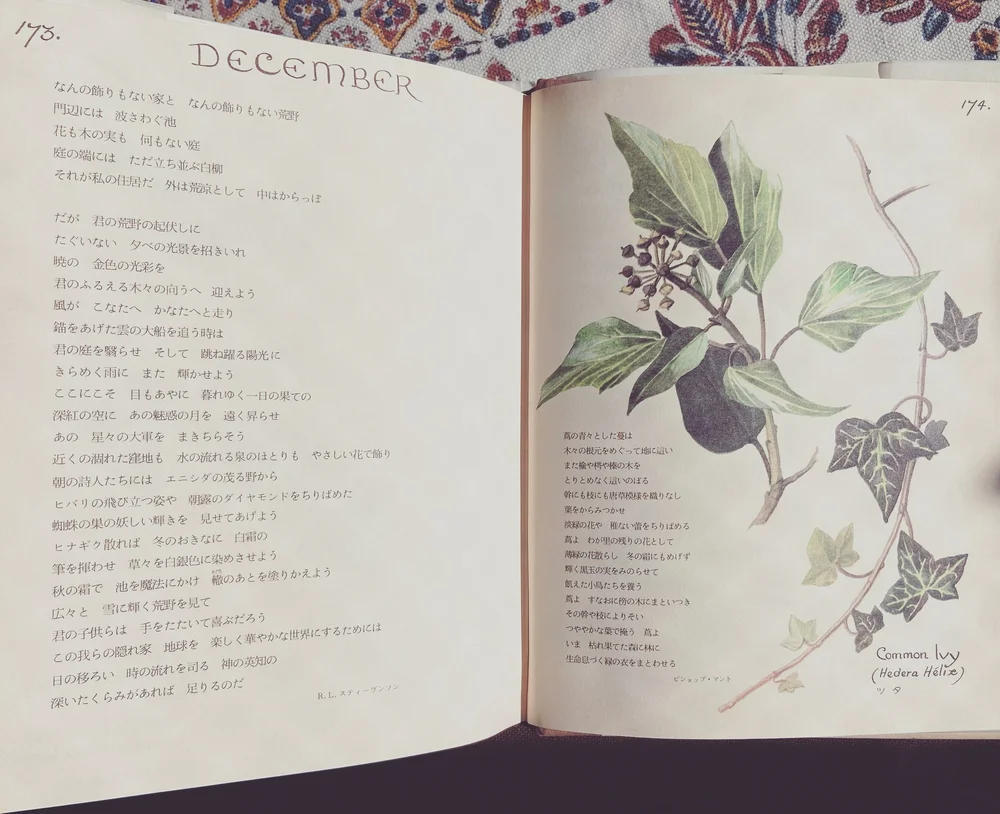 173.
DECEMBER
なんの飾りもない家と　なんの飾りもない荒野
門辺には　波さわぐ池
花も木の実も　何もない庭
庭の端には　ただ立ち並ぶ白柳
それが私の住居だ　外は荒凉として　中はからっぽ
だが　君の荒野の起伏しに
たぐいない　夕べの光景を招きいれ
暁の　金色の光彩を
君のふるえる木々の向うへ　迎えよう
風が　こなたへ　かなたへと走り
錨をあげた雲の大船を追う時は
君の庭を翳らせ　そして　跳ね躍る陽光に
きらめく雨に　また　輝かせよう
ここにこそ　目もあやに　暮れゆく一日の果ての
深紅の空に　あの魅惑の月を　遠く昇らせ
あの　星々の大軍を　まきちらそう
近くの涸れた窪地も　水の流れる泉のほとりも　やさしい花で飾り
朝の詩人たちには　エニシダの茂る野から
ヒバリの飛び立つ姿や　朝露のダイヤモンドをちりばめた
蜘蛛の巣の妖しい輝きを　見せてあげよう
ヒナギク散れば　冬のおきなに　白霜の
筆を揮わせ　草々を白銀色に染めさせよう
秋の霜で　池を魔法にかけ　轍のあとを塗りかえよう
広々と　雪に輝く荒野を見て
君の子供らは　手をたたいて喜ぶだろう
この我らの隠れ家　地球を　楽しく華やかな世界にするためには
日の移ろい　時の流れを司る　神の英知の
深いたくらみがあれば　足りるのだ
R. L. スティーヴンソン
174.
蔦の青々とした蔓は
木々の根元をめぐって地に這い
また楡や栂や榛の木を
とりとめなく這いのぼる
幹にも枝にも唐草模様を織りなし
葉をからみつかせ
淡緑の花や　稚ない蕾をちりばめる
蔦よ　わが里の残りの花として
薄緑の花散らし　冬の霜にもめげず
輝く黒玉の実をみのらせて
飢えた小鳥たちを養う
蔦よ　すなおに傍の木にまといつき
その幹や枝によりそい
つややかな葉で掩う　蔦よ
いま　枯れ果てた森に林に
生命息づく緑の衣をまとわせる
ビショップ・マント
Common Ivy
(Hedera Hélix)
ツタ